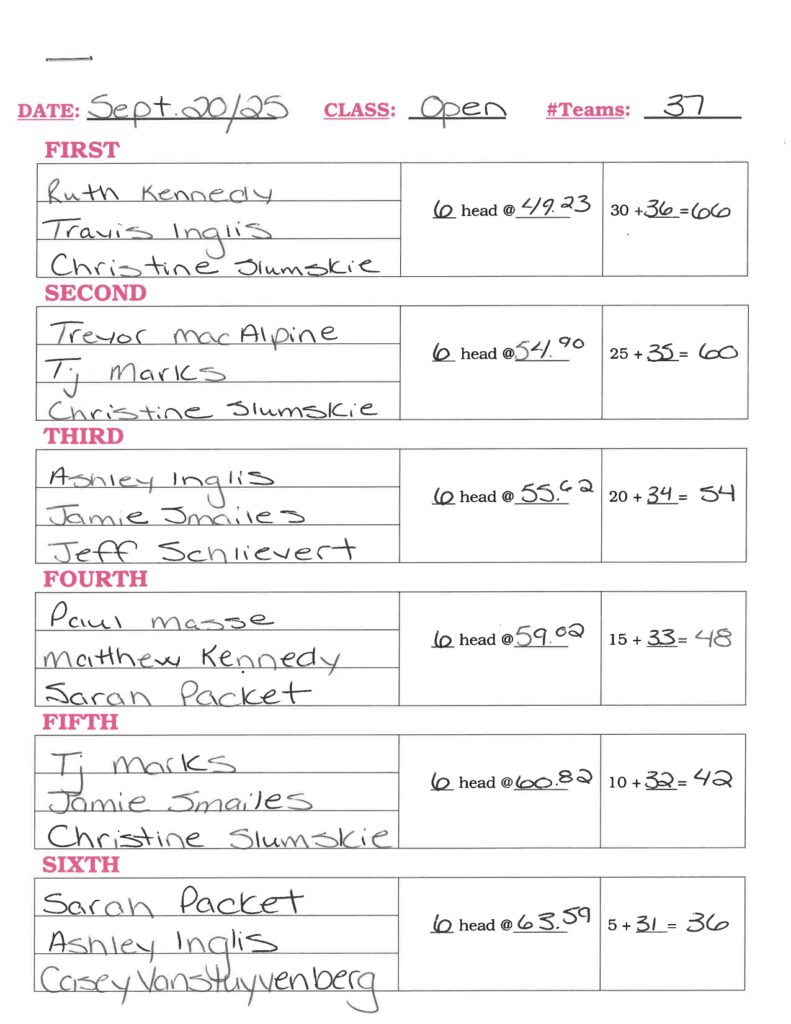 DATE: Sept. 20/25 CLASS: Open #Teams: 37
FIRST
Ruth Kennedy
Travis Inglis
Christine Slumskie
6 head @ 49.23
30 + 36 = 66
SECOND
Trevor MacAlpine
Tj Marks
Christine Slumskie
6 head @ 54.90
25 + 35 = 60
THIRD
Ashley Inglis
Jamie Smailes
Jeff Schlievert
6 head @ 55.62
20 + 34 = 54
FOURTH
Paul Masse
Matthew Kennedy
Sarah Packet
6 head @ 59.02
15 + 33 = 48
FIFTH
Tj Marks
Jamie Smailes
Christine Slumskie
6 head @ 60.82
10 + 32 = 42
SIXTH
Sarah Packet
Ashley Inglis
Casey VanStuyvenberg
6 head @ 63.59
5 + 31 = 36